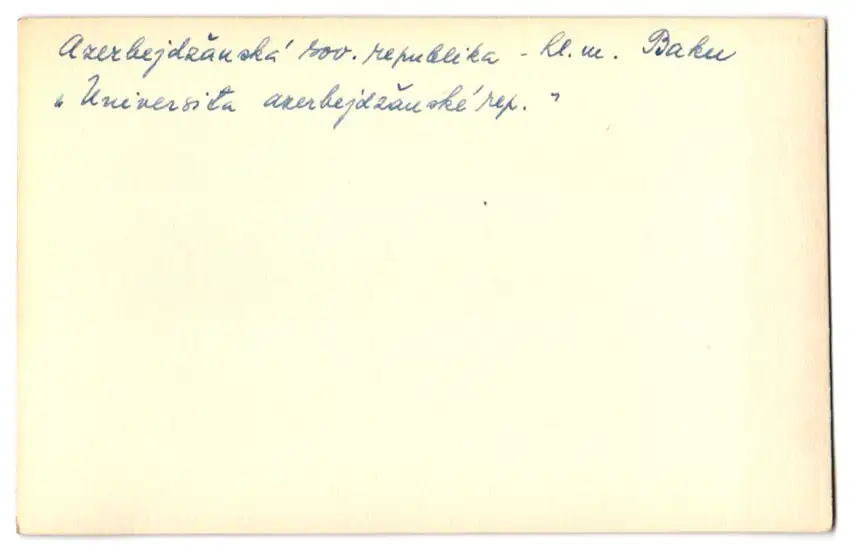 Azerbejdžánská sov. republika - hl. m. Baku
"Universita azerbejdžánské rep."